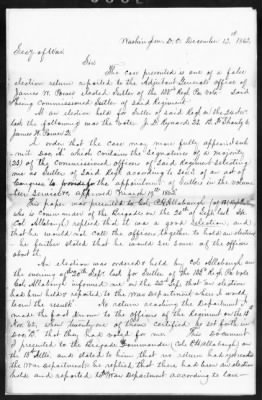 Washington D.C. December 13th 1862.
Secy of War
Sir
The case presented is one of a false
election return reported to the Adjutant Generals office of
James W. elected Sutler of the 155th Regt Pa. Vols. Said
being commissioned Sutler of said Regiment
An election held for Sutler of said Regt on the
last the following was the vote J. D. 22
James W. 21
In order that the case may more fully
mit Doc A which contains the signatures of a majority
(23) of the commissioned officers of said Regiment selecting
me as Sutler of said Regt according to sec 3 of an act of
Congress to provide for the appointment of Sutlers in the volun-
teer Service approved March 19th 1862
This paper was presented to Col.
who is commander of the Brigade on the 20th of Sept last
Col Allabaugh replied that it was a good selection and
that he would not call the officers together to hold an election
he further stated that he would see some of the officers
about it.
An election was ordered & held by Col Allabaugh on
the evening of 20th Sept. last for Sutler of the 155th Regt Pa Vols
Col. Allabaugh informed me on the 22d Sept that an election
had been held & reported to the War Department where I would
learn the result No return reaching the department I
made the fact known to the officers of the Regiment on the 13
Nov 62, when Twenty one of them certified as set forth in
Doc "B" that they had voted for me This document
I presented to the Brigade Commander (Col Allabaugh) on
the 15th and stated to him that no return had reached
the War department he replied that there had been an election
held and reported to War Department according to law